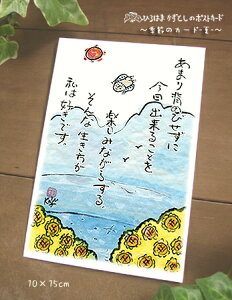 ひろはまかずとしのポストカード
～季節のカード・夏～
あまり背のびせずに
今日出来ることを
楽しみながらする
そんな生き方が
私は好きです。
10×15cm